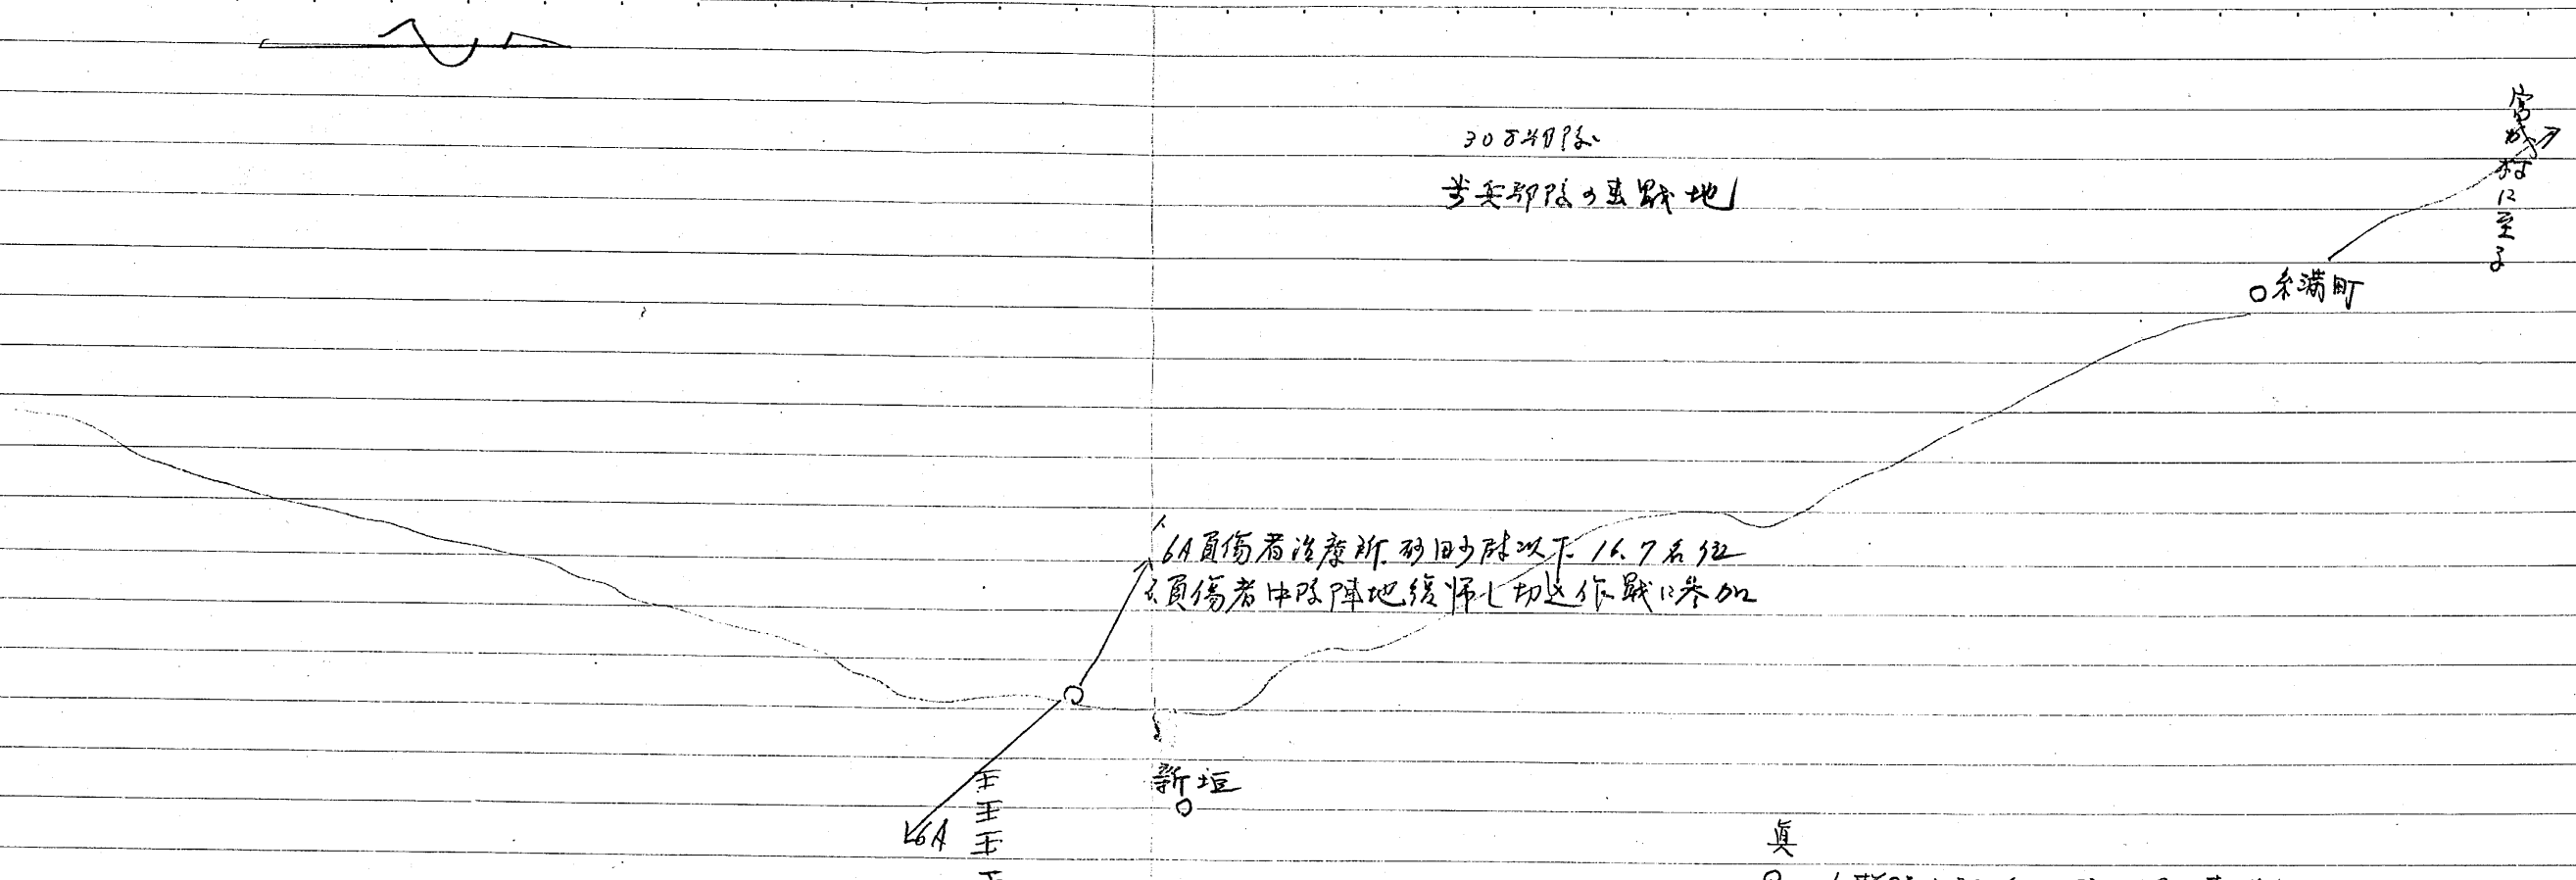 歩兵部隊の主戰地
宮城村に至る
糸満町
6A負傷者治療所 砂田少尉以下 16.7名位
負傷者中隊陣地復帰し切込作戰に参加
新垣
6A
眞